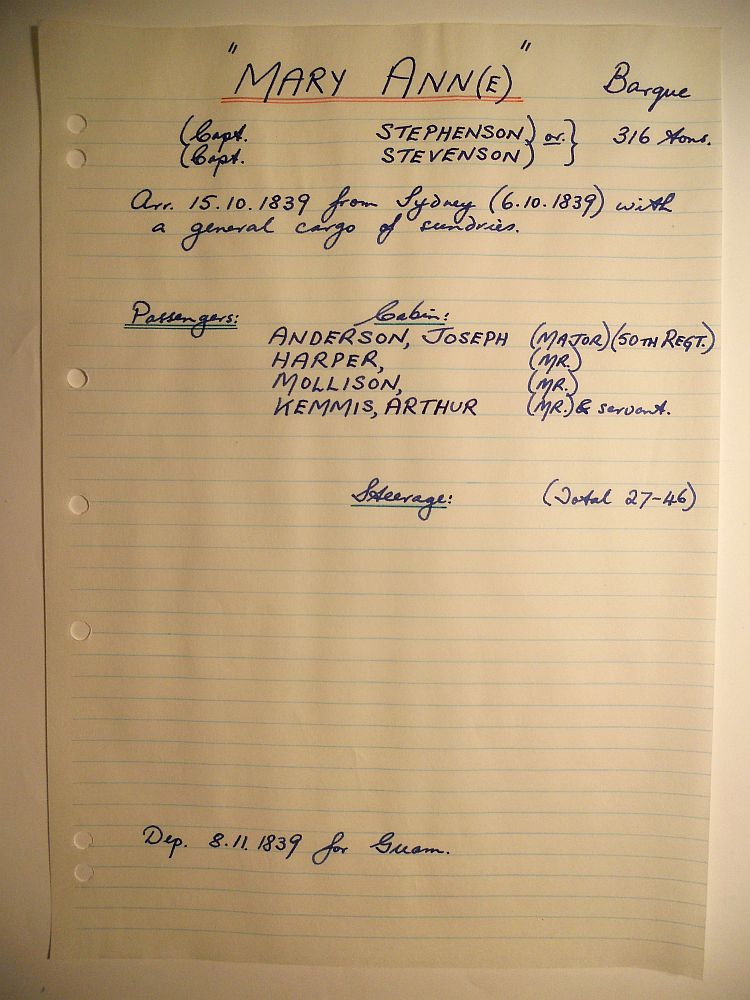 "MARY ANN(E)" Barque
(Capt. STEPHENSON) or } 316 tons.
(Capt. STEVENSON)
Arr. 15.10.1839 from Sydney (6.10.1839) with
a general cargo of sundries.
Passengers: Cabin:
ANDERSON, JOSEPH (MAJOR) (50TH REGT.)
HARPER, (MR.)
MOLLISON, (MR.)
KEMMIS, ARTHUR (MR.) & servant.
Steerage: (Total 27-46)
Dep. 8.11.1839 for Guam.